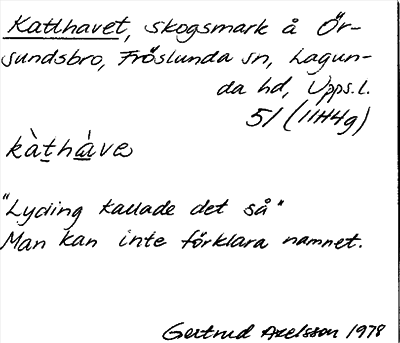 Katthavet, skogsmark å Ör-
sundsbro, Fröslunda sn, Lagun-
da hd, Upps.l.
51 (11H4g)
kàthàve
"Lyding kallade det så"
Man kan inte förklara namnet.
Gertrud Axelsson 1978